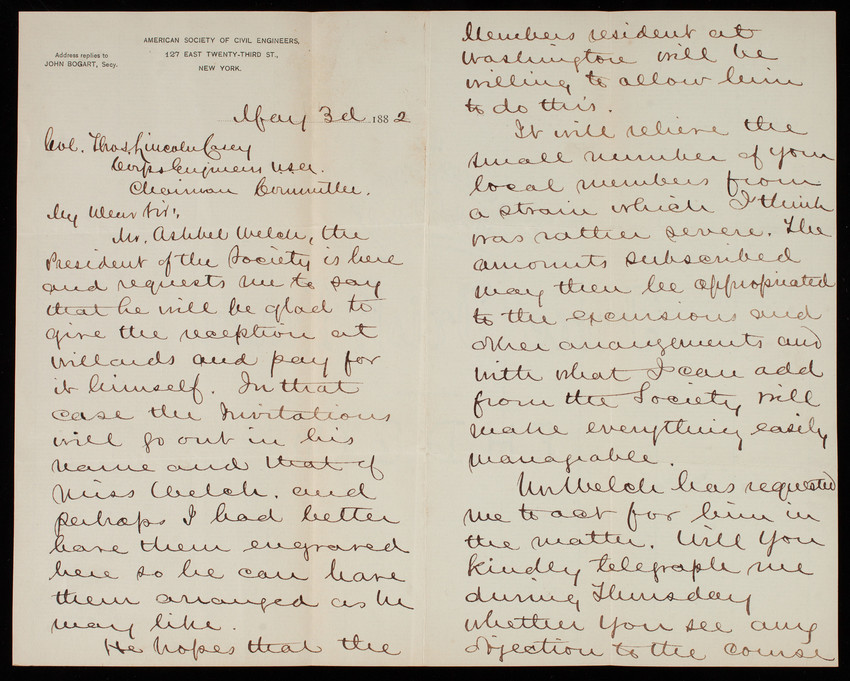 AMERICAN SOCIETY OF CIVIL ENGINEERS,
127 EAST TWENTY-THIRD ST.,
NEW YORK.
Address replies to
JOHN BOGART, Secy.
May 3d 1882
Col. Thos. Lincoln Casey
Corps Engineers U.S.A.
Chairman Committee.
My Dear Sir:
Mr. Ashbel Welch, the
President of the Society is here
and requests me to say
that he will be glad to
give the reception at
Willards and pay for
it himself. In that
case the Invitations
will go out in his
name and that of
Miss Welch. and
perhaps I had better
have them engraved
here so he can have
them arranged as he
may like.
He hopes that the
Members resident at
Washington will be
willing to allow him
to do this.
It will relieve the
small number of your
local members from
a strain which I think
was rather severe. The
amounts subscribed
may then be appropriated
to the excursions and
other arrangements and
with what I can add
from the Society will
make everything easily
manageable.
Mr Welch has requested
me to act for him in
the matter. Will you
kindly telegraph me
during Thursday
whether you see any
objection to the course